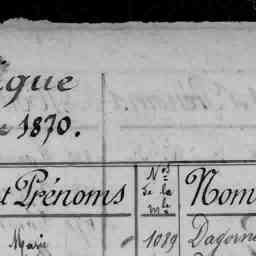 ique
1870.
t Prénoms
Nos
de la
Nom
Marie
1089
Dagorn